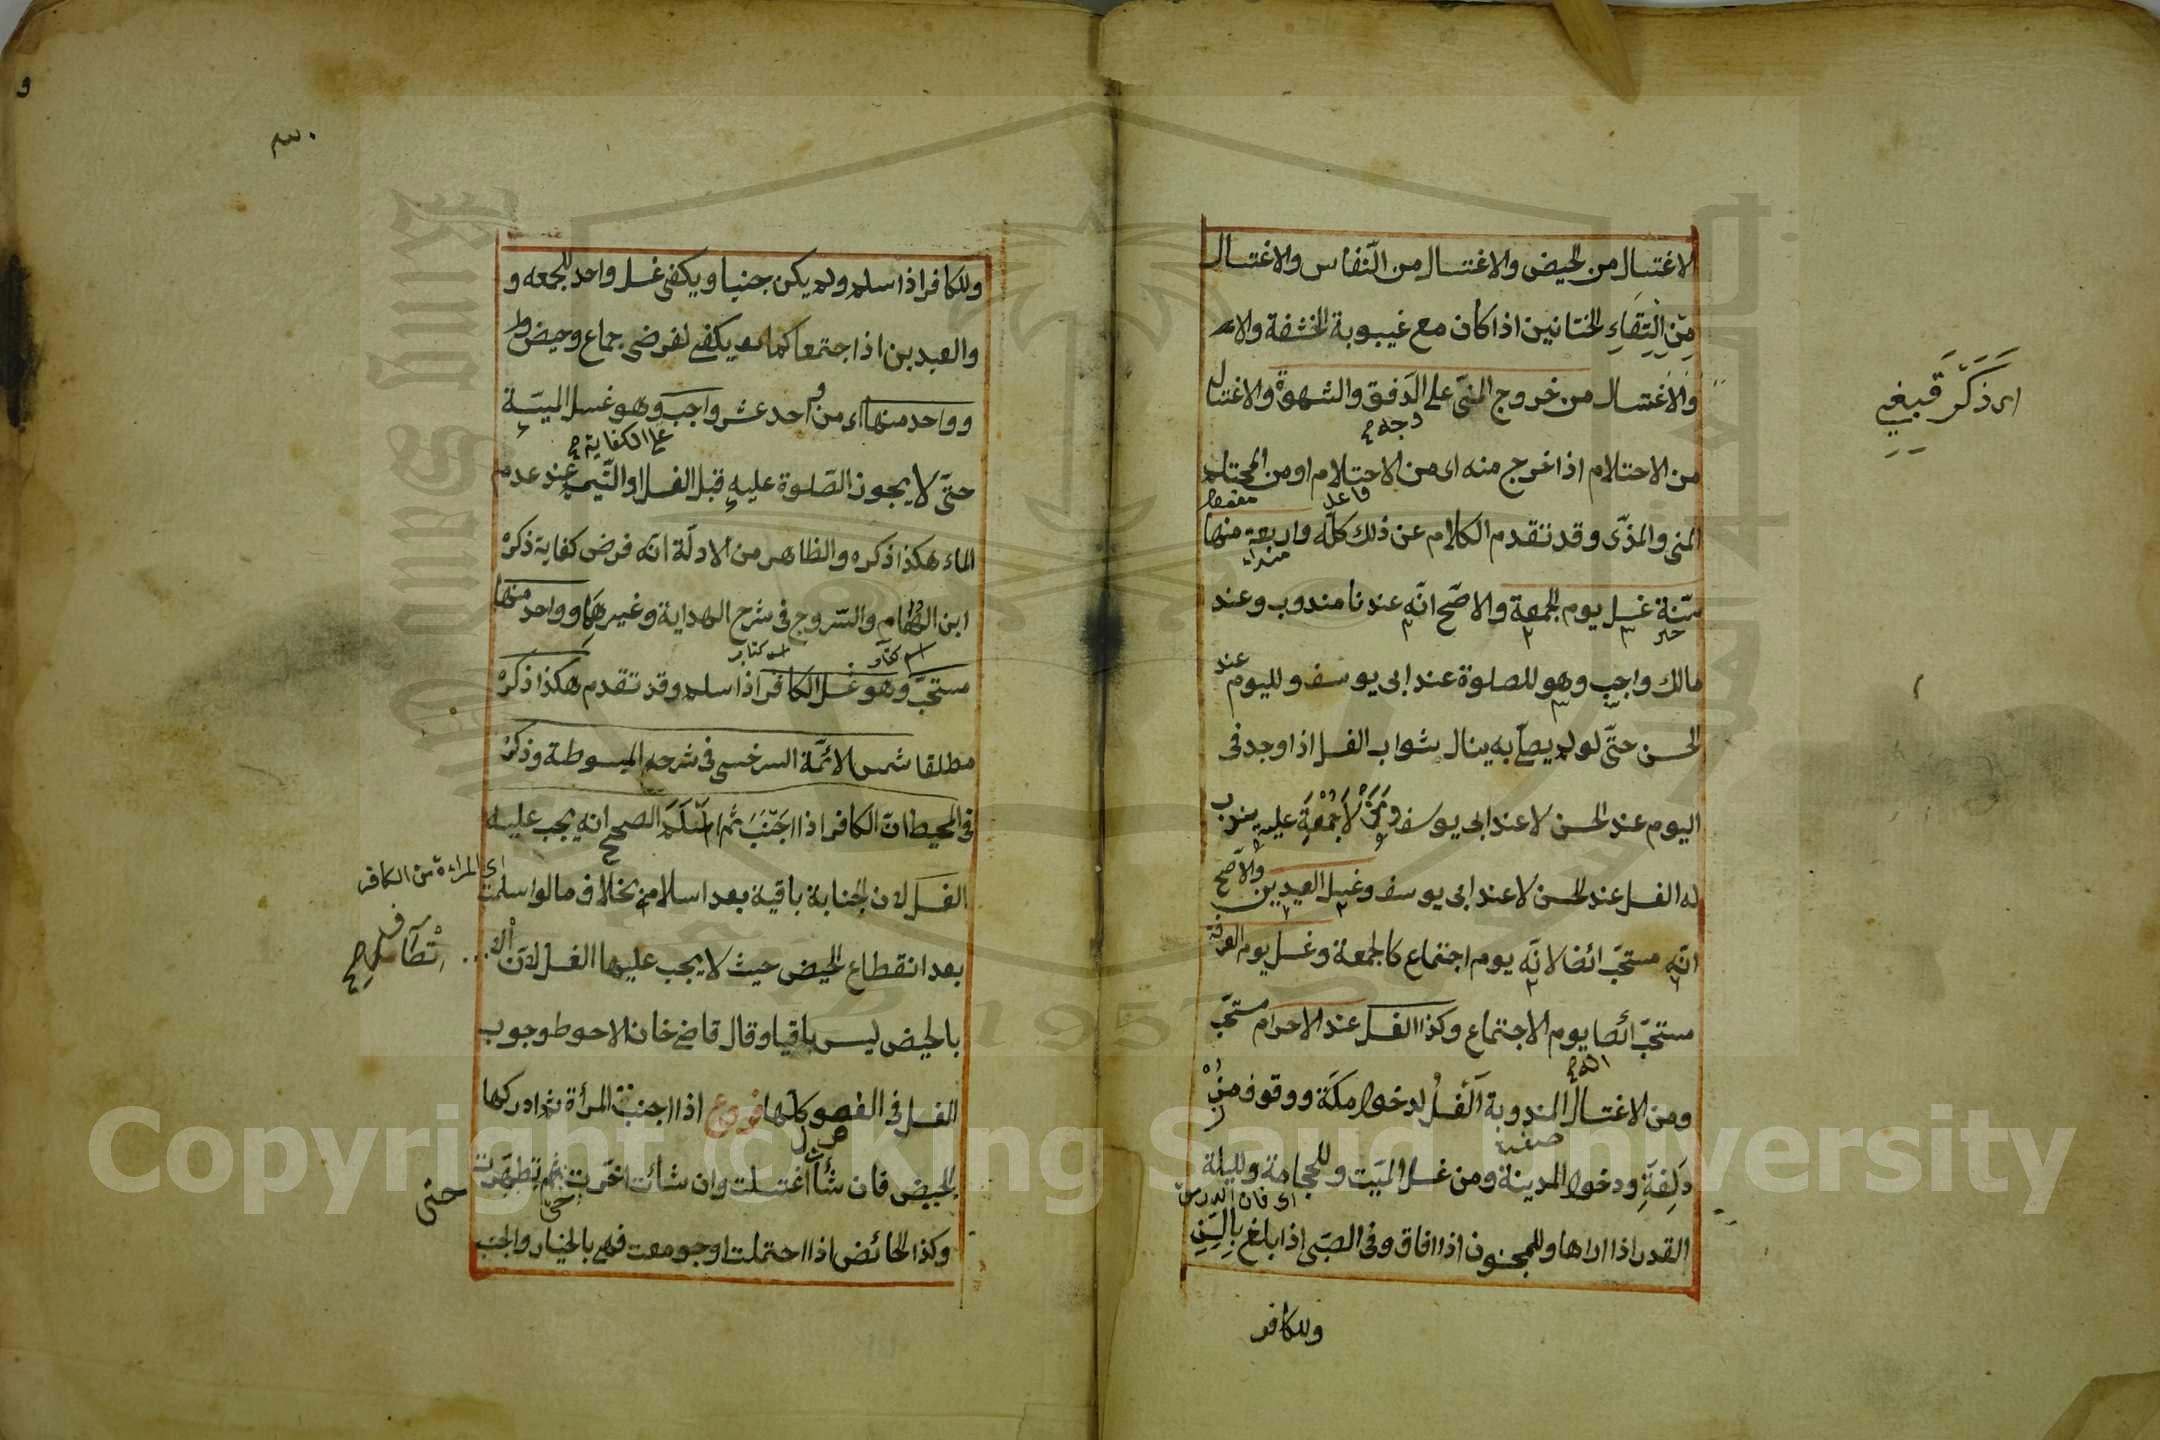 الاغتسال من الحيض والاغتسال من النّفاس والاغتسال
مِن اِلتِقاءِ الختانين اذا كان مع غيبوبة الحشفة
والاغتسال من خروج المنىّ على الدَفق والشهوة والاغتسال
من الاحتلام اذا خرج منه اى من الاحتلام او من المحتلم
المنى والمذّى وقد تقدم الكلام عن ذلك كلّه واربعة منها
سنّة غسل يوم الجمعة والاصّح انّه عندنا مندوب وعند
مالك واجب وهو للصلوة عند ابى يوسف ولليوم عند
الحسن حتّى لو لم يصلّ به ينال ثواب الغسل اذا وجد فى
اليوم عند الحسن لا عند ابى يوسف ومَنْ لاَ جُمْعَةَ عليه يندب
له الغسل عند الحسن لا عند ابى يوسف وغسل العيدين والاَصّح
انّه مستحَبّ ائضا لانّه يوم اجتماع كالجمعة وغسل يوم العرفة
مستحَبّ ائضا يوم الاجتماع وكذا الغسل عند الاحرام مستحَبّ
ومن الاغتسال المندوبة اَلغسلُ لدخول مكّة ووقوف مزْ
دَلِفَةِ ودخول المدينة ومن غسل الميّت وللحجامة وليلة
القدر اذا اراها وللمجنون اذا افاق وفى الصبّى اذا بلغ بِالسِّنِ
وللكافر
اى ذَكَّرَ
وللكافر اذا اسلم ولم يكن جنبا ويكفى غسل واحد للجمعه و
والعيد بن اذا اجتمعا كما يكفى لفرضى جماع وحيض
وواحد منها اى من احد عشر واجب وهو غسل الميّة
على الكفاية
حتّى لا يجوز الصّلوة عليه قبل الغسل او التّيمم عند عدم
الماء هكذا ذكره والظاهر من الادلّة انّه فرض كفاية ذكره
ابن الهمام والسّروج فى شرح الهداية وغيرهَا وواحد منها
مستحَبّ وهو غسل الكافر اذا اسلم وقد تقدم هكذا ذكره
مطلقا شمس الائمّة السرخسى فى شرحه المبسوطة وذكر
فى المحيط انّ الكافر اذا اجَنَبَ ثم اسْلَمَ الصحيح انه يجب عليه
الغسل لان الجنابة باقية بعد اسلامه بخلاف ما لو اسلمت
اى المراة من الكافر
بعد انقطاع الحيض حيث لا يجب عليها الغسل لانّ
بالحيض ليس باقيا وقال قاضى خان الاحوط وجوب
الغسل فى الفصول كلّها فروع اذا اجنبت المرأة ثم ادركها
الحيض فان شأت اغتسلت وان شأت اخّرت حتى تطهّرت
حتى
وكذا الحائض اذا احتملت او جومعت فهى بالخيار والجنب
Copyright © King Saud University
1957